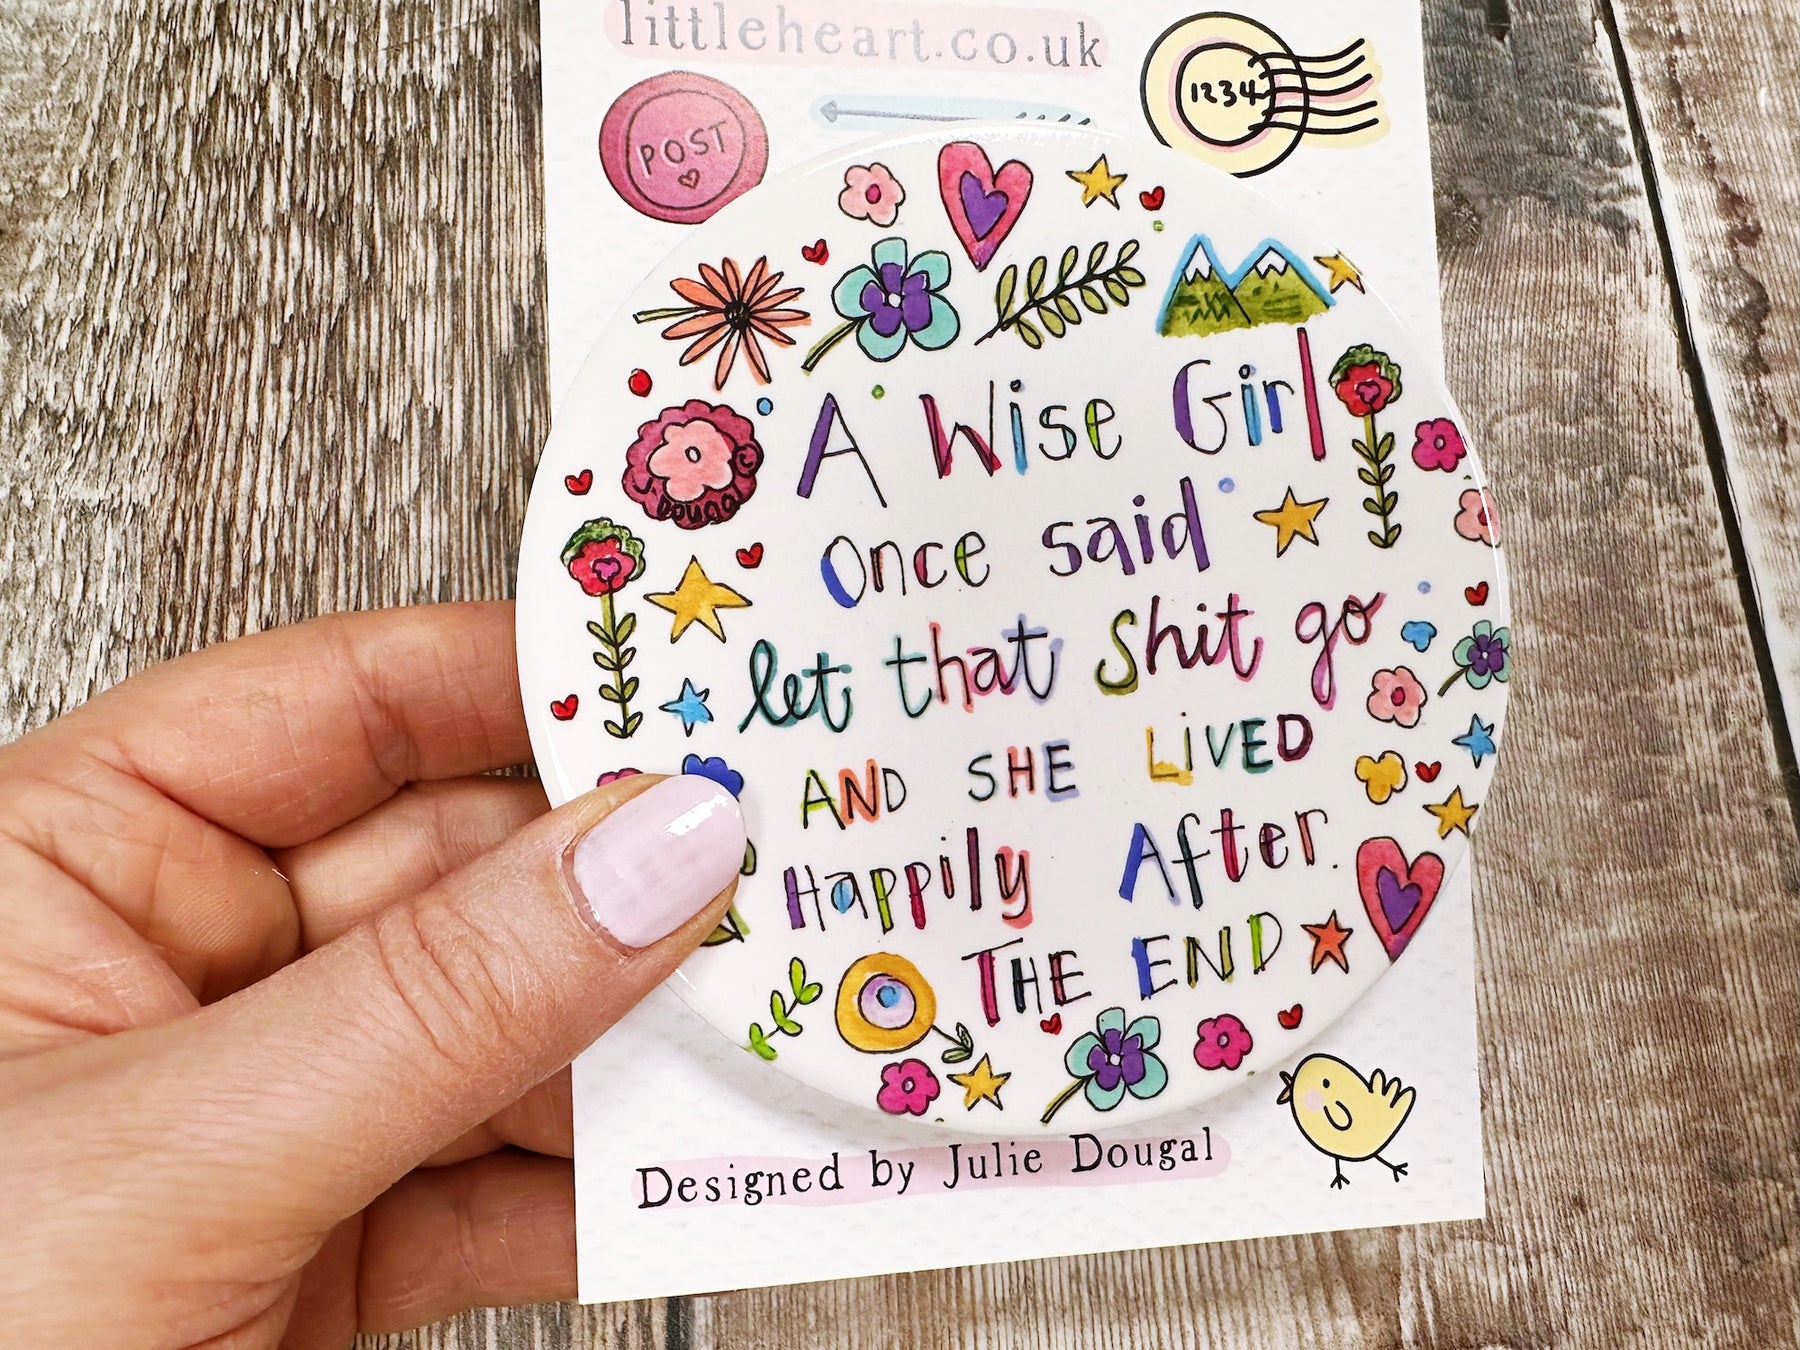 littleheart.co.uk
POST
1234
A Wise Girl
Once said
let that Shit go
AND SHE LIVED
Happily After.
THE END
©
J. Dougal
Designed by Julie Dougal